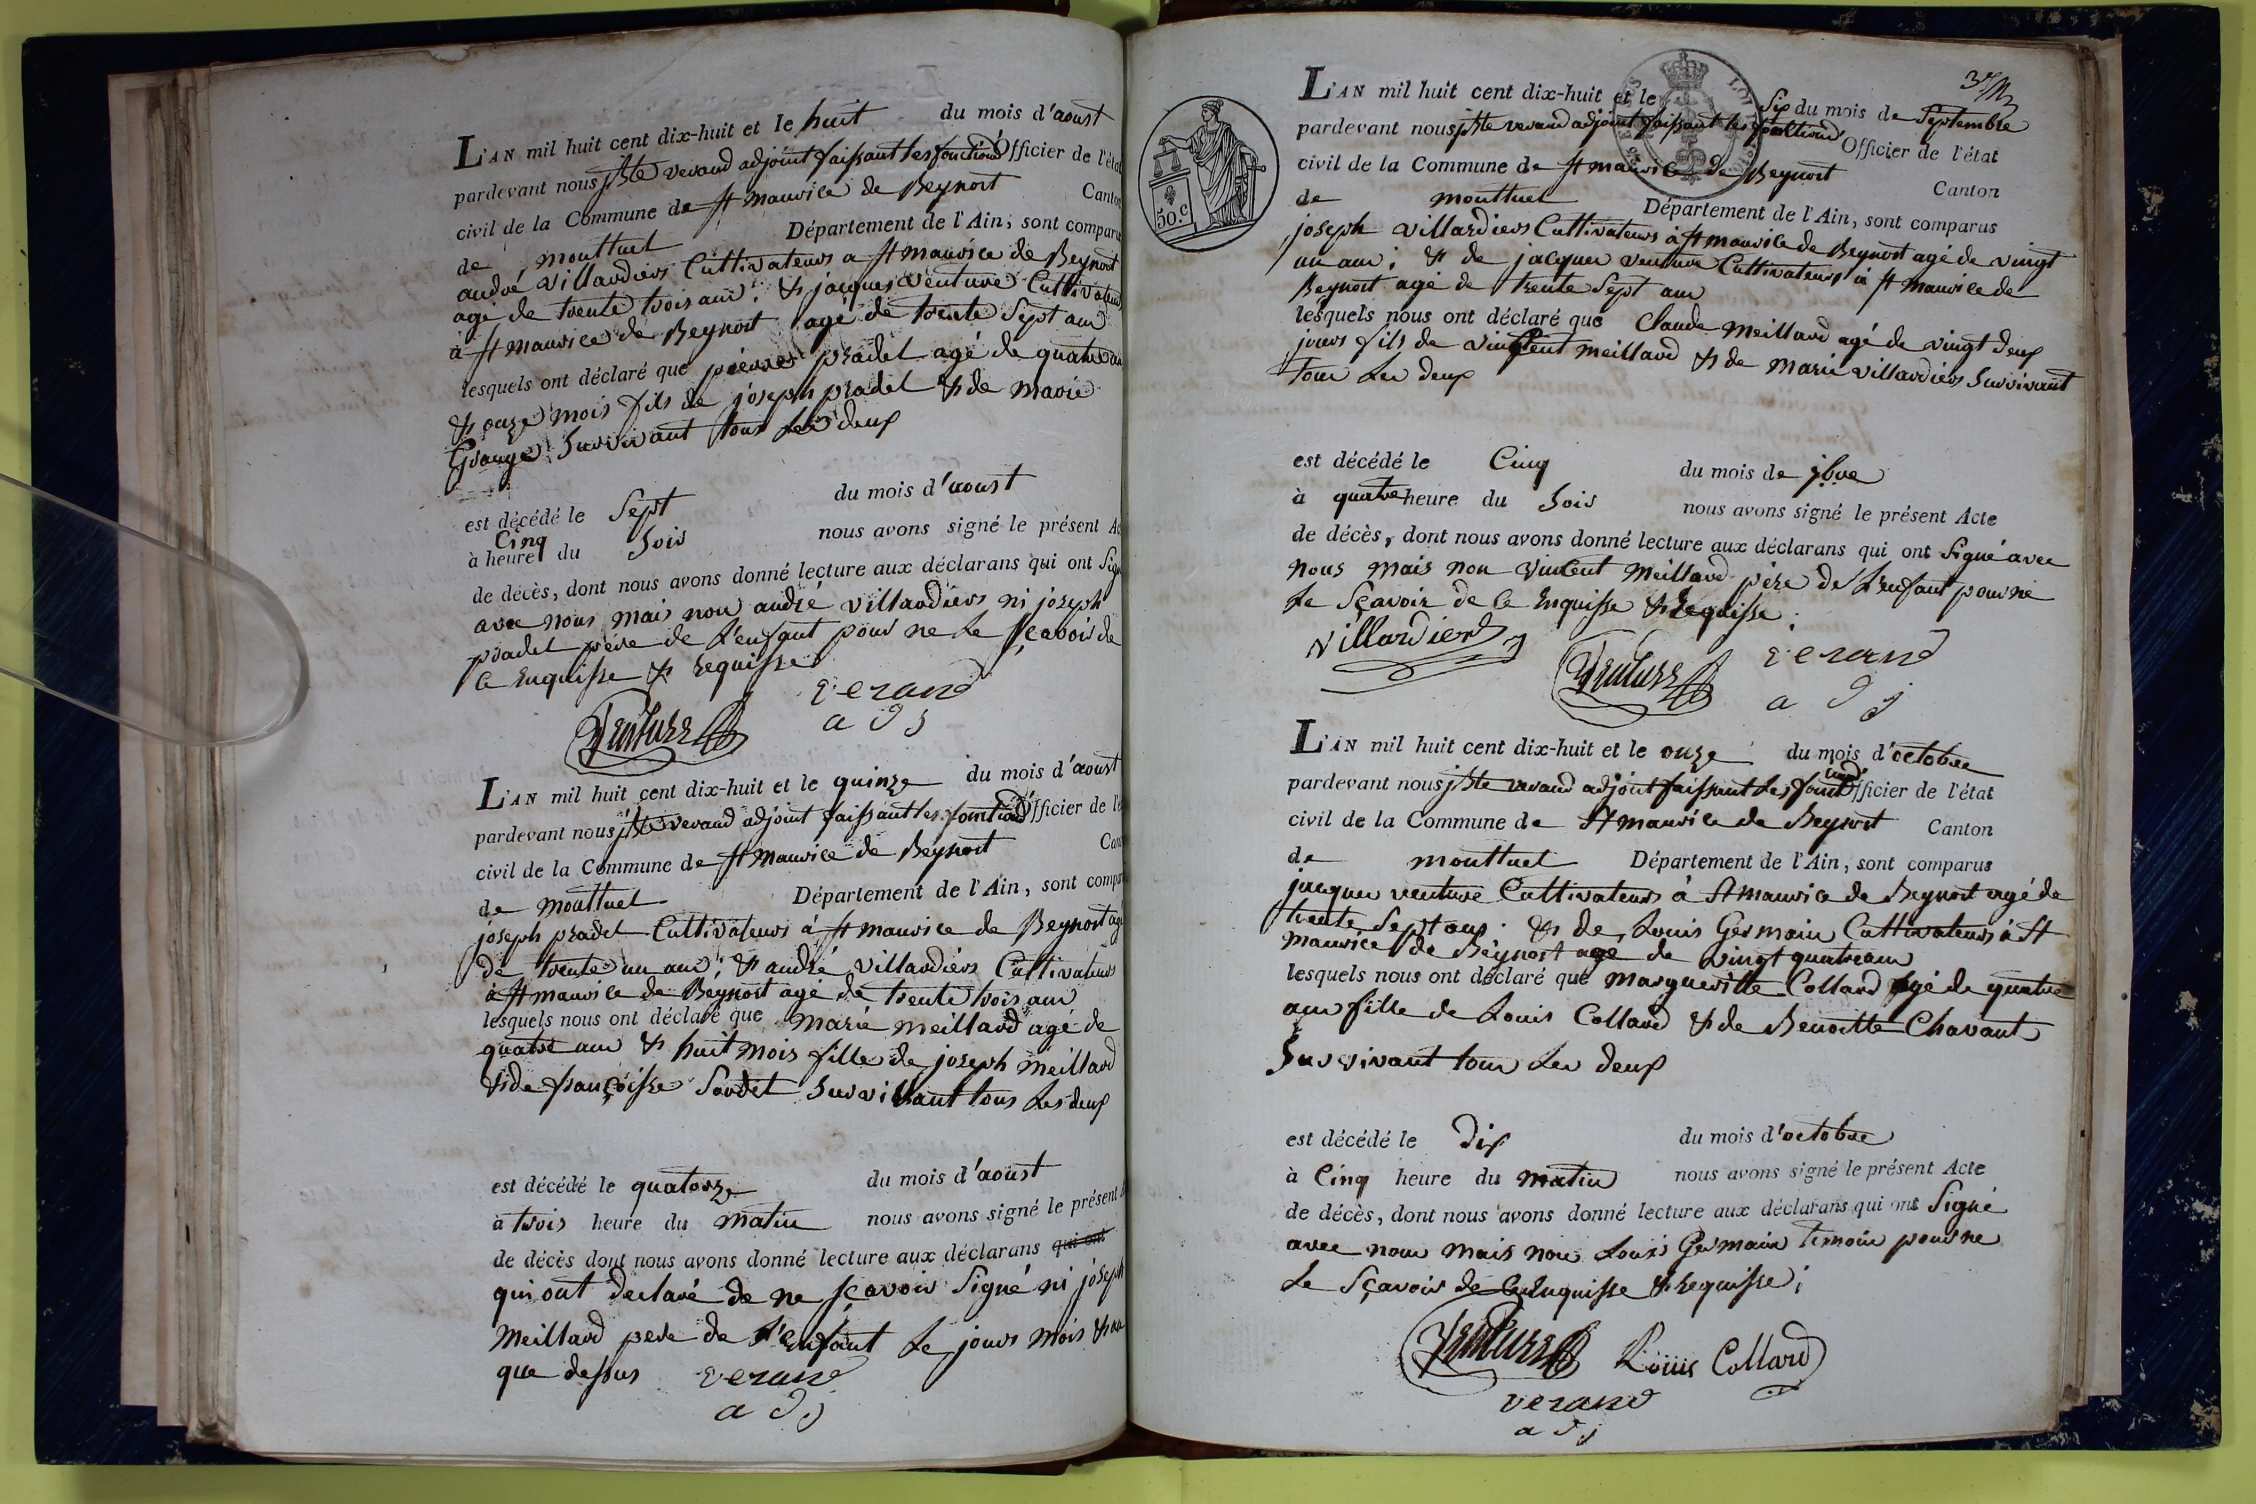 L'AN mil huit cent dix-huit et le huit du mois d'aoust
pardevant nous jBte verand adjoint faissant les fonctions Officier de l'état
civil de la Commune de St maurice de Beynost Canton
de montluel Département de l'Ain, sont comparus
andré villardiers Cultivateurs a St maurice de Beynost
agé de trente trois ans; & jacques venture Cultivateurs
à St maurice de Beynost agé de trente Sept ans
lesquels ont déclaré que pierre pradel agé de quatre ans
& onze mois fils de joseph pradel & de marie
Grange Survivant tous Les deux
est décédé le Sept du mois d'aoust
Cinq
à heure du Soir nous avons signé le présent Ac
de décès, dont nous avons donné lecture aux déclarans qui ont Signé
avec nous mais non andré villardiers ni joseph
pradel père de L'enfant pour ne Le Sçavoir de
Ce Enquisse & Requisse
Venture verand
adj
L'AN mil huit cent dix-huit et le quinze du mois d'aoust
pardevant nous jBte verand adjoint faissant les fonctions Officier de l'é
civil de la Commune de St maurice de Beynost Can
de montluel Département de l'Ain, sont compar
joseph pradel Cultivateurs à St maurice de Beynost agé
de trente un ans; & andré villardiers Cultivateurs
à St maurice de Beynost agé de trente trois ans
lesquels nous ont déclaré que marie meillard agé de
quatre ans & huit mois fille de joseph meillard
& de françoisse Sordet Survivant tous Les deux
est décédé le quatorze du mois d'aoust
à trois heure du matin nous avons signé le présent A
de décès dont nous avons donné lecture aux déclarans qui ont
qui ont declaré de ne sçavoir Signé ni joseph
meillard pere de L'enfant Le jours mois & an
que dessus verand
adj
L'AN mil huit cent dix-huit et le Six du mois de Septembre
pardevant nous jBte verand adjoint faissant les fonctions Officier de l'état
civil de la Commune de St maurice de Beynost Canton
de montluel Département de l'Ain, sont comparus
joseph villardiers Cultivateurs à St maurice de Beynost agé de vingt
un ans; & de jacques venture Cultivateurs à St maurice de
Beynost agé de trente Sept ans
lesquels nous ont déclaré que Claude meillard agé de vingt deux
jours fils de vincent meillard & de marie villardiers Survivant
tous Les deux
50.c
est décédé le Cinq du mois de 7bre
à quatre heure du Soir nous avons signé le présent Acte
de décès, dont nous avons donné lecture aux déclarans qui ont Signé avec
nous mais non vincent meillard père de L'enfant pour ne
Le Sçavoir de Ce Enquisse & Requisse;
villardier
Venture verand
adj
L'AN mil huit cent dix-huit et le onze du mois d'octobre
pardevant nous jBte verand adjoint faissant Les fonctions Officier de l'état
civil de la Commune de St maurice de Beynost Canton
de montluel Département de l'Ain, sont comparus
jacques venture Cultivateurs à St maurice de Beynost agé de
trente Sept ans. & de Louis Germain Cultivateurs à St
maurice de Beynost age de vingt quatre ans
lesquels nous ont déclaré que margueritte Collard agé de quatre
ans fille de Louis Collard & de Benoitte Chavant
Survivant tous Les deux
est décédé le Dix du mois d'octobre
à Cinq heure du matin nous avons signé le présent Acte
de décès, dont nous avons donné lecture aux déclarans qui ont Signé
avec nous mais non Louis Germain temoin pour ne
Le Sçavoir de Ce Enquisse & Requisse;
Venture Louis Collard
verand
adj